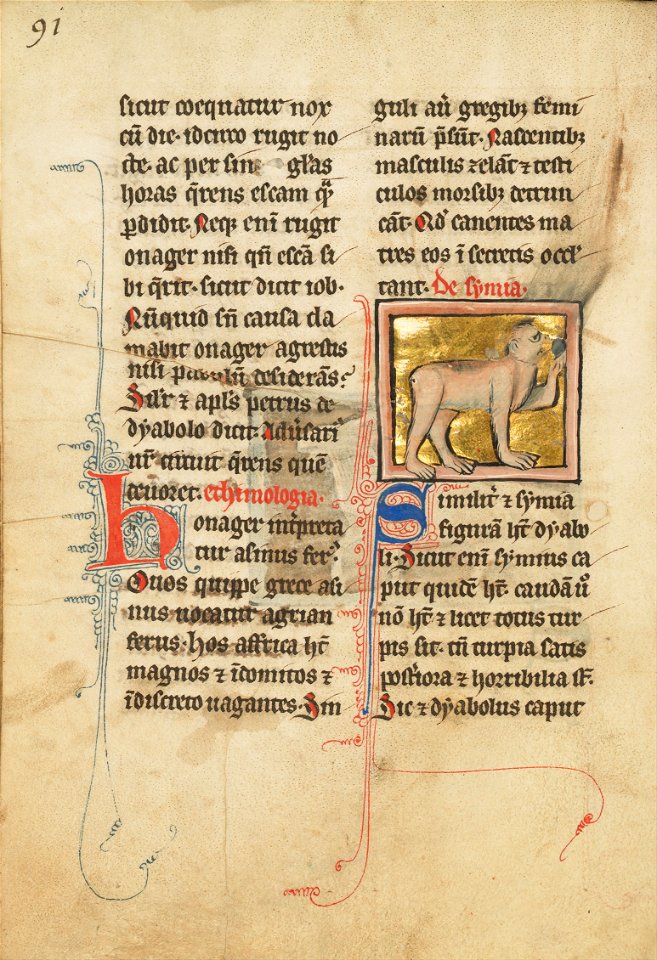 91
sicut coequatur nox
cū die. idcirco rugit no
cte. ac per sin glas
horas q̄rens escam q̄
ꝑdidit. Neqꝫ enī rugit
onager nisi qn̄ escā si
bi q̄rit. sicut dicit iob.
Nūquid sn̄ causa cla
mabit onager agrestis
nisi desiderās?
Silr̄ ⁊ apl̄s petrus de
dyabolo dicit. Adūsari
circuit q̄rens quē
deuoret. ethimologia.
honager int̄preta
tur asinus fer᷒.
Quos quippe grece asi
nus uocatur agrian
ferus. hos affrica ht̄
magnos ⁊ īdomitos ⁊
īdiscreto uagantes. Sin
guli aūt gregibꝫ femi
narū p̄sūt. Nascentibꝫ
masculis zelāt ⁊ testi
culos morsibꝫ detrun
cāt. canentes ma
tres eos ī secretis occul
tant. De symia.
Similit̄ ⁊ symia
figurā ht̄ dyabo
li. Sicut enī symius ca
put quidē ht̄. caudā ů
nō ht̄ ⁊ licet totus tur
pis sit. tn̄ turpia satis
post̄iora ⁊ horribilia st̄.
Sic ⁊ dyabolus caput